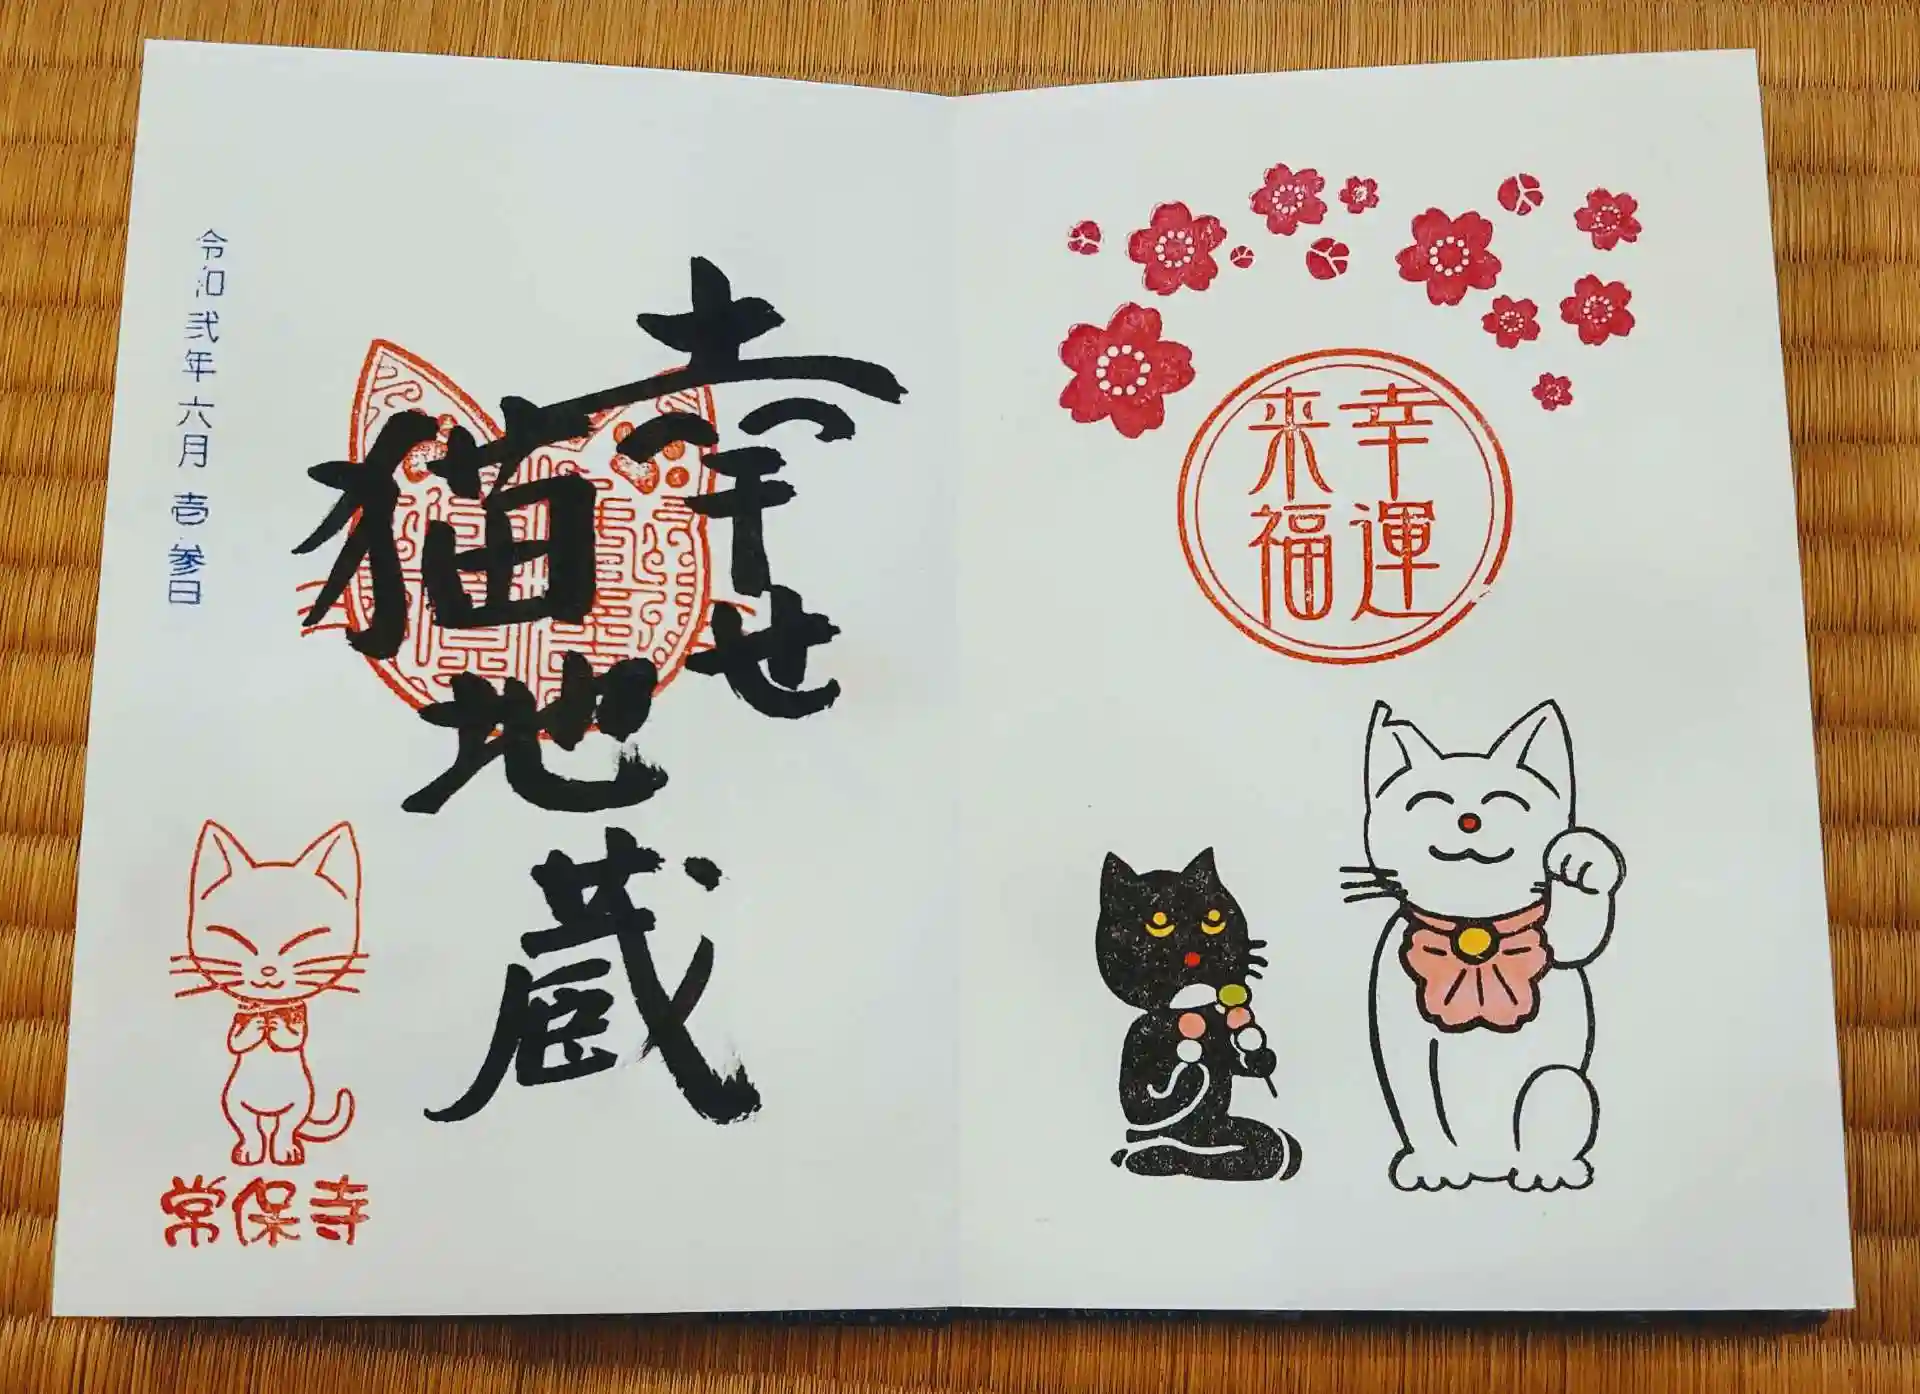 幸運
来福
幸せ
猫地蔵
令和弐年六月壱参日
常保寺